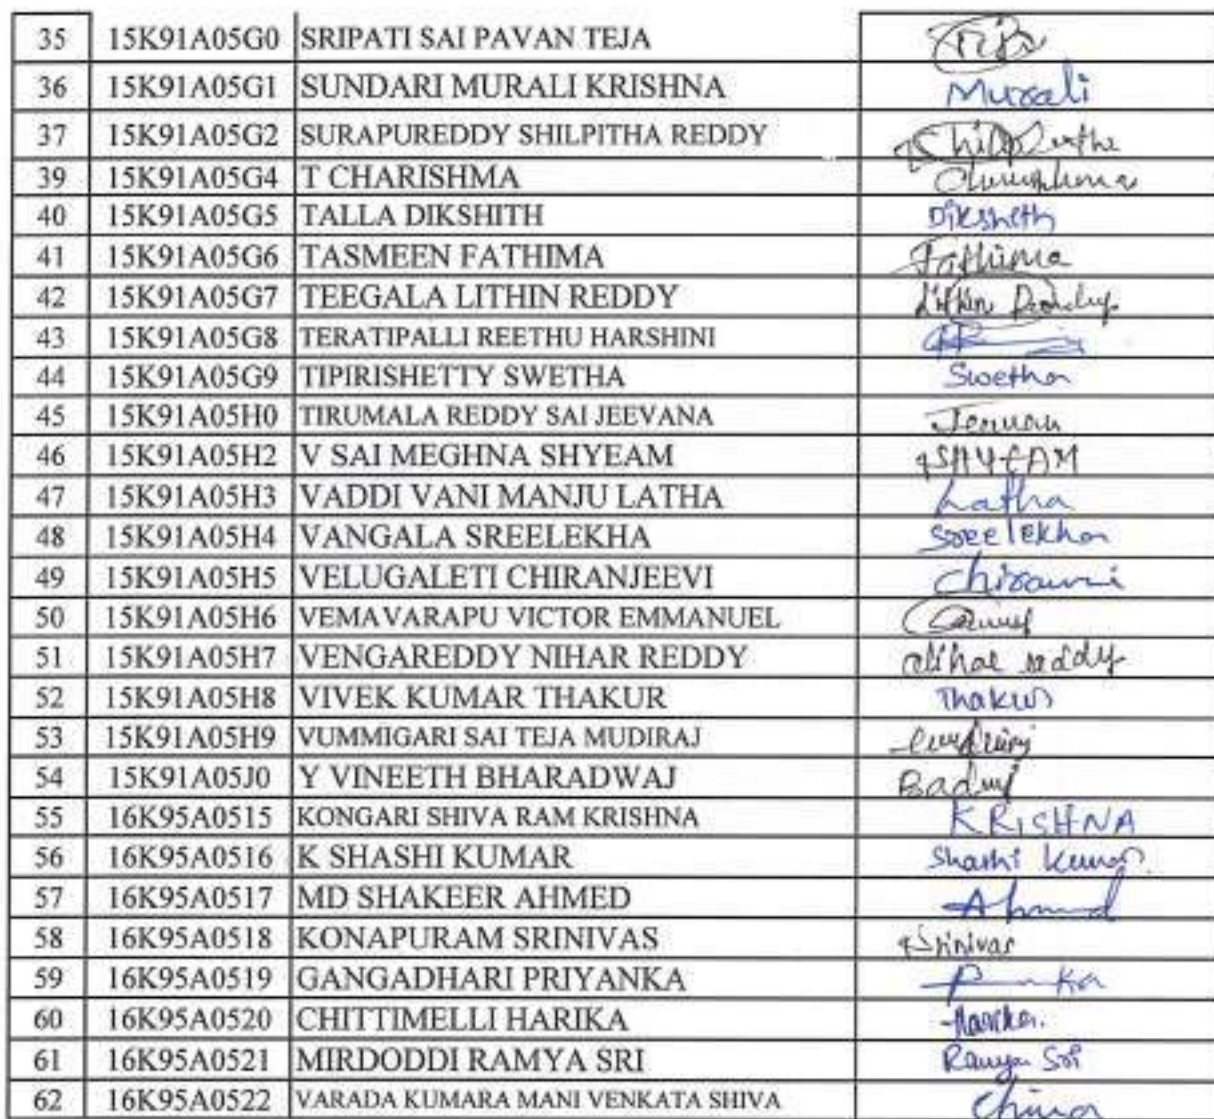 35 15K91A05G0 SRIPATI SAI PAVAN TEJA
36 15K91A05G1 SUNDARI MURALI KRISHNA Murali
37 15K91A05G2 SURAPUREDDY SHILPITHA REDDY
39 15K91A05G4 T CHARISHMA
40 15K91A05G5 TALLA DIKSHITH Dikshith
41 15K91A05G6 TASMEEN FATHIMA Fathima
42 15K91A05G7 TEEGALA LITHIN REDDY Lithin
43 15K91A05G8 TERATIPALLI REETHU HARSHINI
44 15K91A05G9 TIPIRISHETTY SWETHA Swetha
45 15K91A05H0 TIRUMALA REDDY SAI JEEVANA
46 15K91A05H2 V SAI MEGHNA SHYEAM SHYEAM
47 15K91A05H3 VADDI VANI MANJU LATHA Latha
48 15K91A05H4 VANGALA SREELEKHA Sreelekha
49 15K91A05H5 VELUGALETI CHIRANJEEVI
50 15K91A05H6 VEMAVARAPU VICTOR EMMANUEL
51 15K91A05H7 VENGAREDDY NIHAR REDDY reddy
52 15K91A05H8 VIVEK KUMAR THAKUR Thakur
53 15K91A05H9 VUMMIGARI SAI TEJA MUDIRAJ
54 15K91A05J0 Y VINEETH BHARADWAJ
55 16K95A0515 KONGARI SHIVA RAM KRISHNA KRISHNA
56 16K95A0516 K SHASHI KUMAR Shashi Kumar
57 16K95A0517 MD SHAKEER AHMED Ahmed
58 16K95A0518 KONAPURAM SRINIVAS Srinivas
59 16K95A0519 GANGADHARI PRIYANKA
60 16K95A0520 CHITTIMELLI HARIKA Harika.
61 16K95A0521 MIRDODDI RAMYA SRI Ramya Sri
62 16K95A0522 VARADA KUMARA MANI VENKATA SHIVA